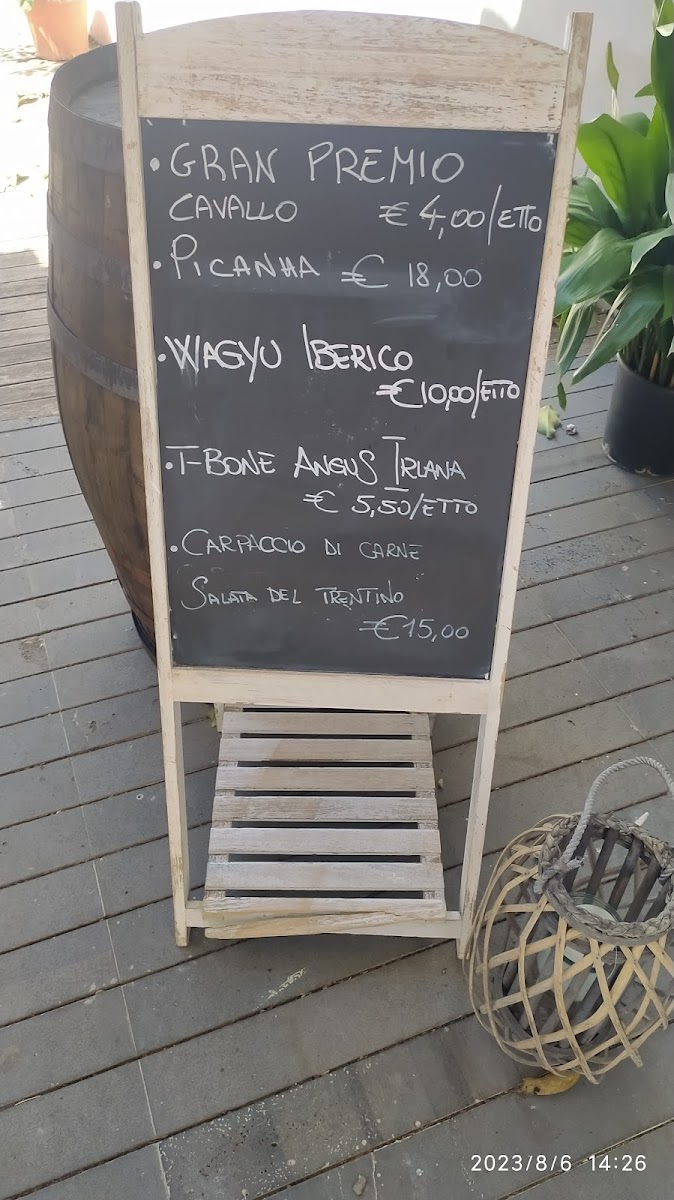 • GRAN PREMIO
CAVALLO € 4,00/ETTO
• PICANHA € 18,00
• WAGYU IBERICO
€10,00/ETTO
• T-BONE ANGUS IRLANA
€ 5,50/ETTO
• CARPACCIO DI CARNE
SALATA DEL TRENTINO
€15,00
2023/8/6 14:26